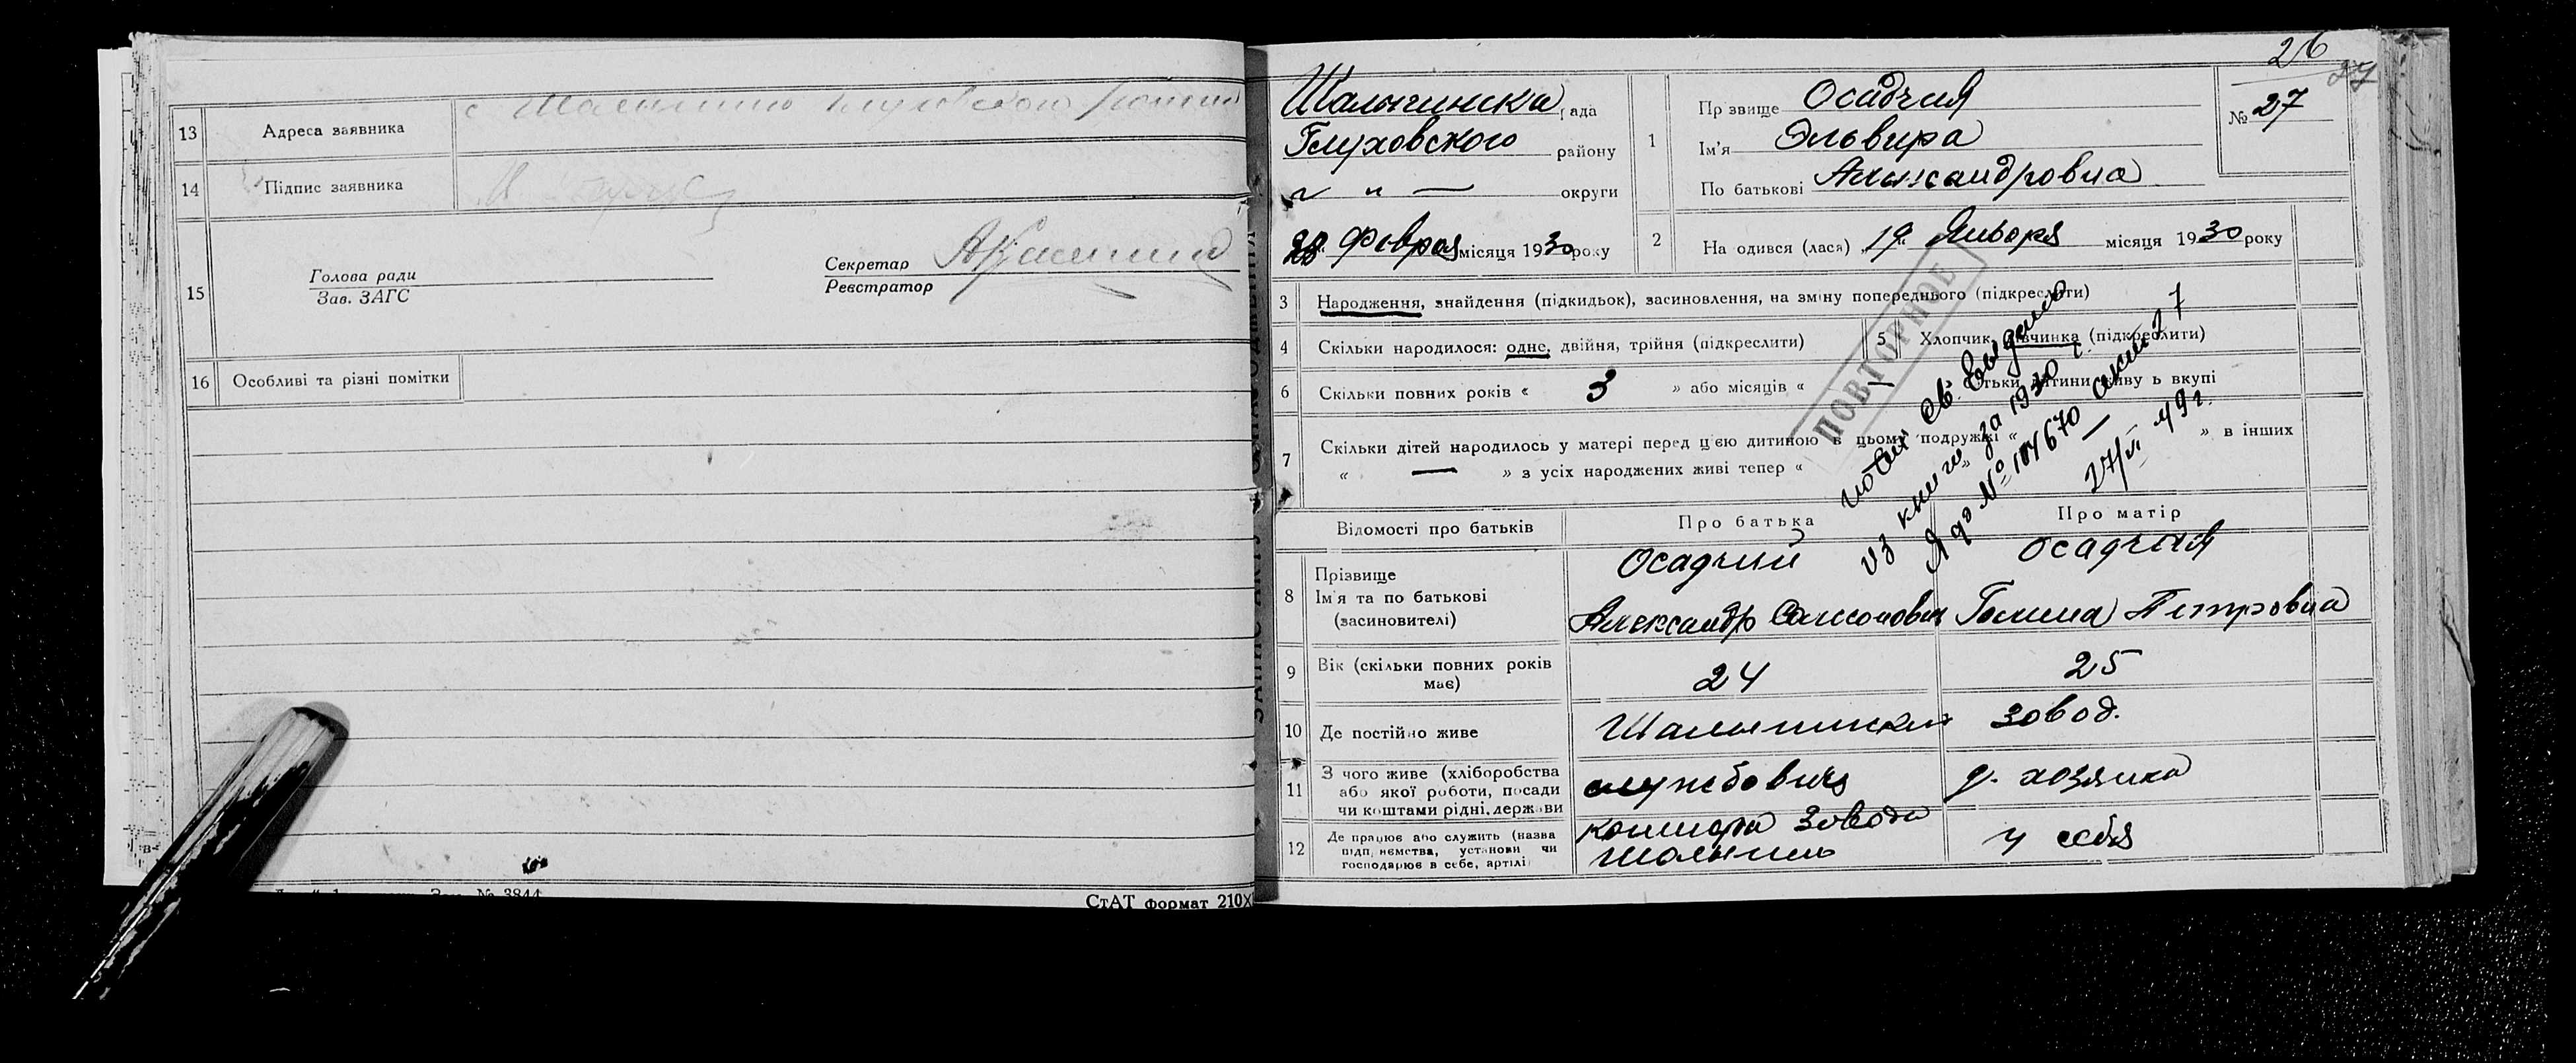 13 Адреса заявника
14 Підпис заявника
15
Голова ради
Зав. ЗАГС
Секретар
Реєстратор
16 Особливі та різні помітки
№ 3844
СтАТ формат 210X
26
27
Шалыгинска рада
Глуховского району
— " — округи
28 Февраля місяця 1930 року
1
Прізвище Осадчая
Ім'я Эльвира
По батькові Александровна
№ 27
2 На одився (лася) „19" Января місяця 1930 року
3 Народження, знайдення (підкидьок), засиновлення, на зміну попереднього (підкреслити)
4 Скільки народилося: одне, двійня, трійня (підкреслити)
5 Хлопчик, дівчинка (підкреслити)
6 Скільки повних років « 3 » або місяців « батьки дитини живуть вкупі
7 Скільки дітей народилось у матері перед цією дитиною в цьому подружжі « » в інших
« — » з усіх народжених живі тепер « »
ПОВТОРНОЕ
св. выдано
из книги за 1930 г.
№ 104670 27
27/VI 49 г.
Відомості про батьків
Про батька
Про матір
8 Прізвище
Ім'я та по батькові
(засновителі)
Осадчий
Александр Самсонович
Осадчая
Галина Петровна
9 Вік (скільки повних років має)
24
25
10 Де постійно живе
Шалыгински завод.
11 З чого живе (хліборобства
або якої роботи, посади
чи коштами рідні, держави
службовия
д. хозяйка
12 Де працює або служить (назва
підприємства, установи чи
господарює в себе, артілі)
контора завода
у себя